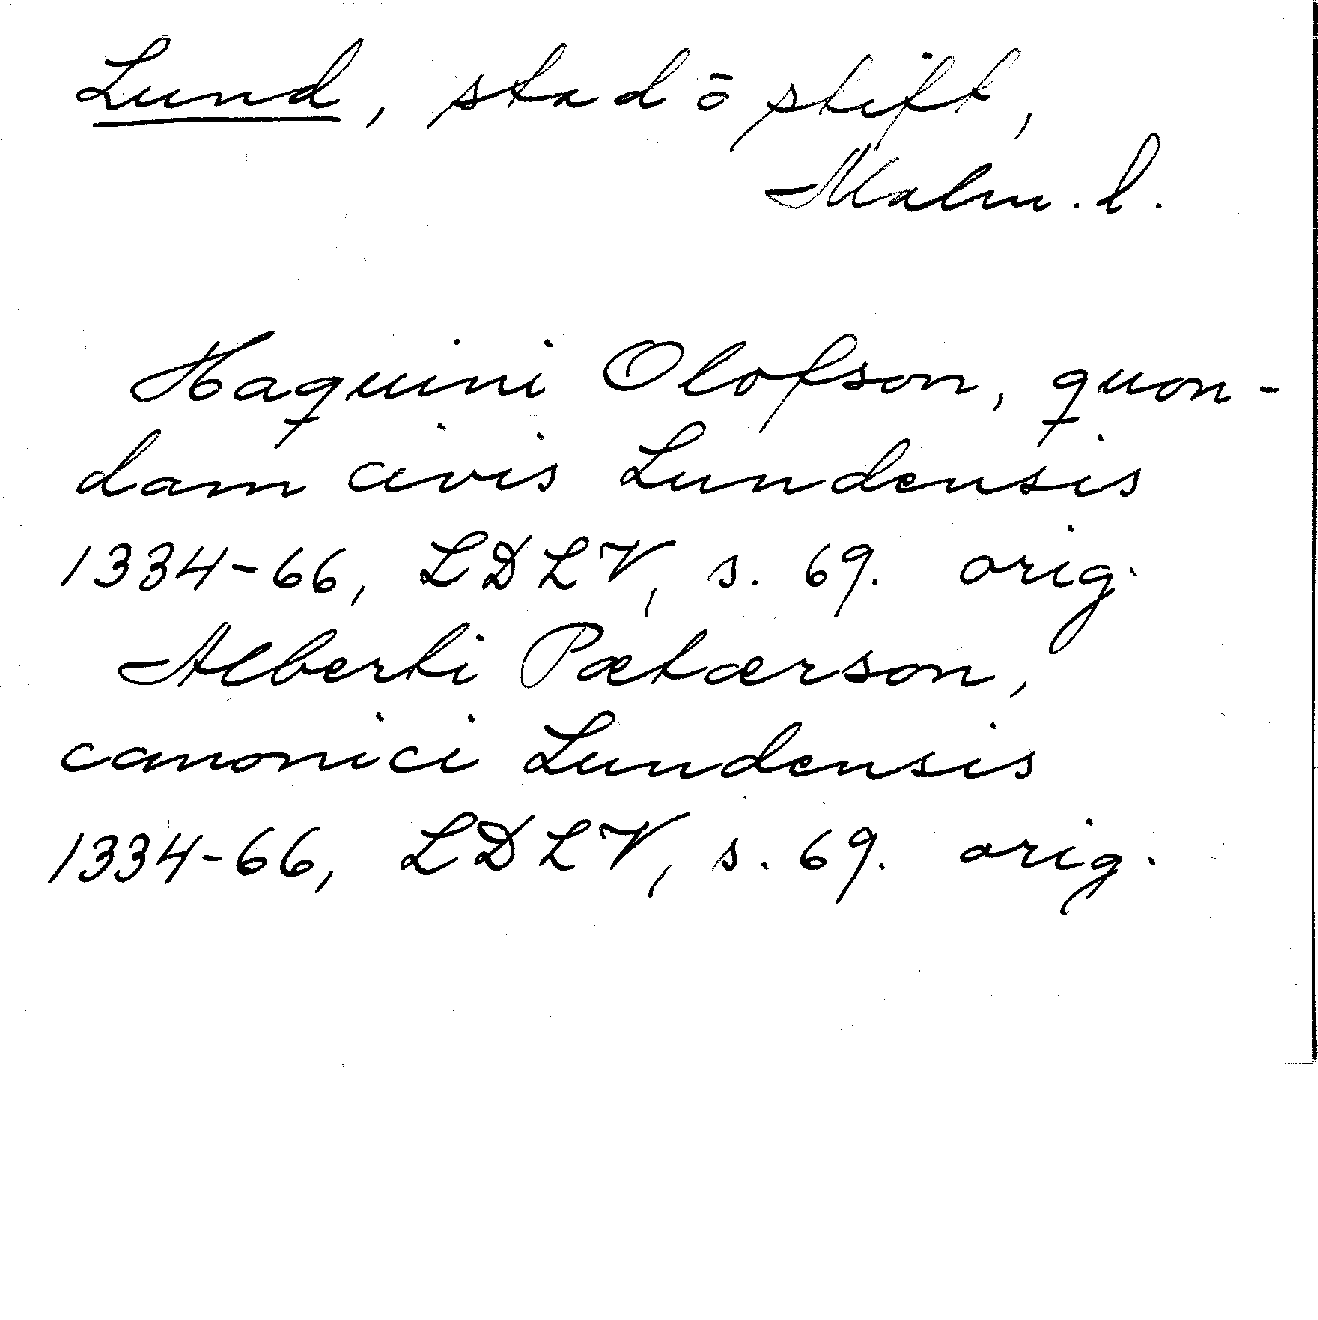 Lund, stad ō stift,
Malm. l.
Haquini Olofson, quon-
dam civis Lundensis
1334-66, LDLV, s. 69. orig.
Alberti Pætærson,
canonici Lundensis
1334-66, LDLV, s. 69. orig.